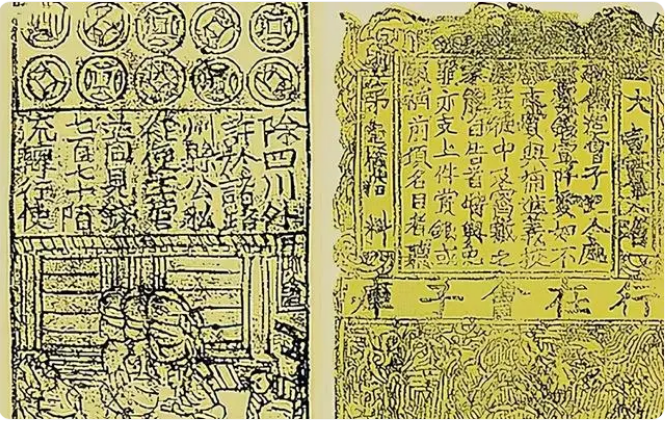 除四川外
許於諸路
州縣公私
從便主管
並同見錢
七百七十陌
流轉行使
大壹貫文省
敕偽造會子犯人處
斬賞錢壹阡貫如不
願支賞與補進義校
尉若徒中及窩藏之
家能自告首特與免
罪亦支上件賞錢或
願補前項名目者聽
第壹百拾料
行在會子庫